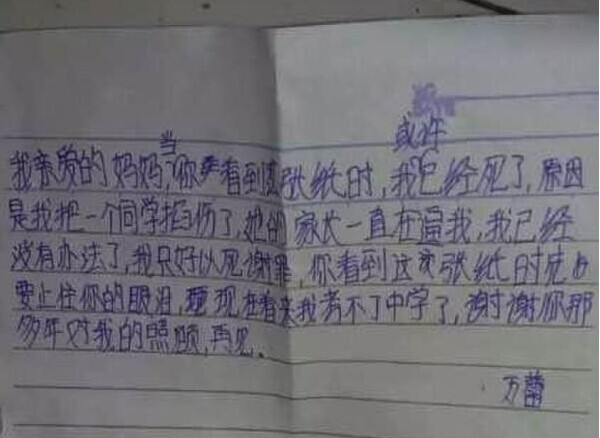 当 或许
我亲爱的妈妈,你看到这张纸时,我已经死了,原因
是我把一个同学掐伤了,她的家长一直在逼我,我已经
没有办法了,我只好以死谢罪,你看到这张纸时
要止住你的眼泪,现在看来我考不了中学了,谢谢你那
多年对我的照顾,再见。
万